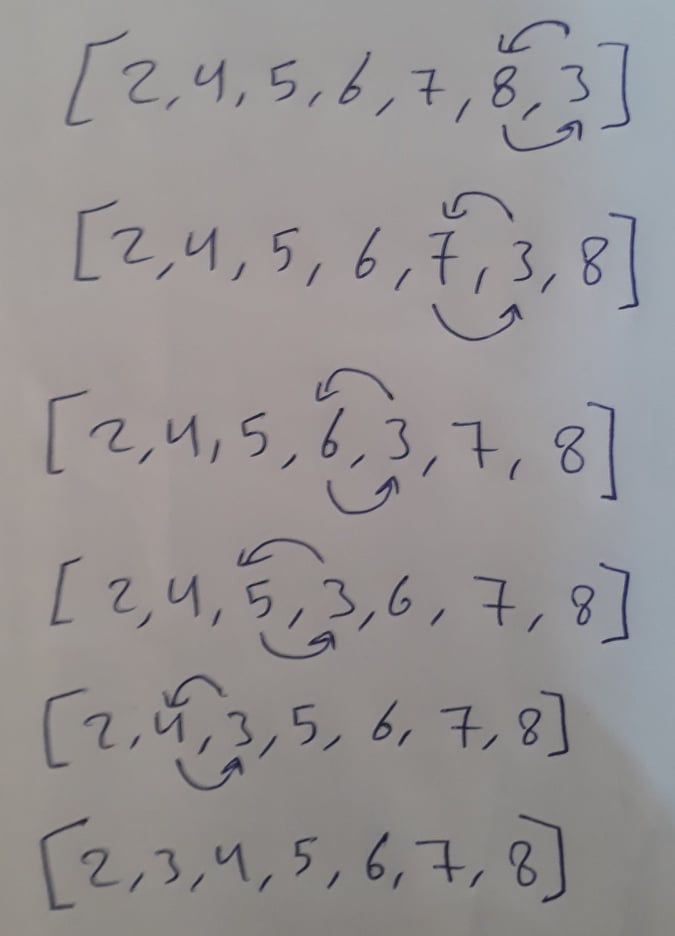 [2, 4, 5, 6, 7, 8, 3]
[2, 4, 5, 6, 7, 3, 8]
[2, 4, 5, 6, 3, 7, 8]
[2, 4, 5, 3, 6, 7, 8]
[2, 4, 3, 5, 6, 7, 8]
[2, 3, 4, 5, 6, 7, 8]